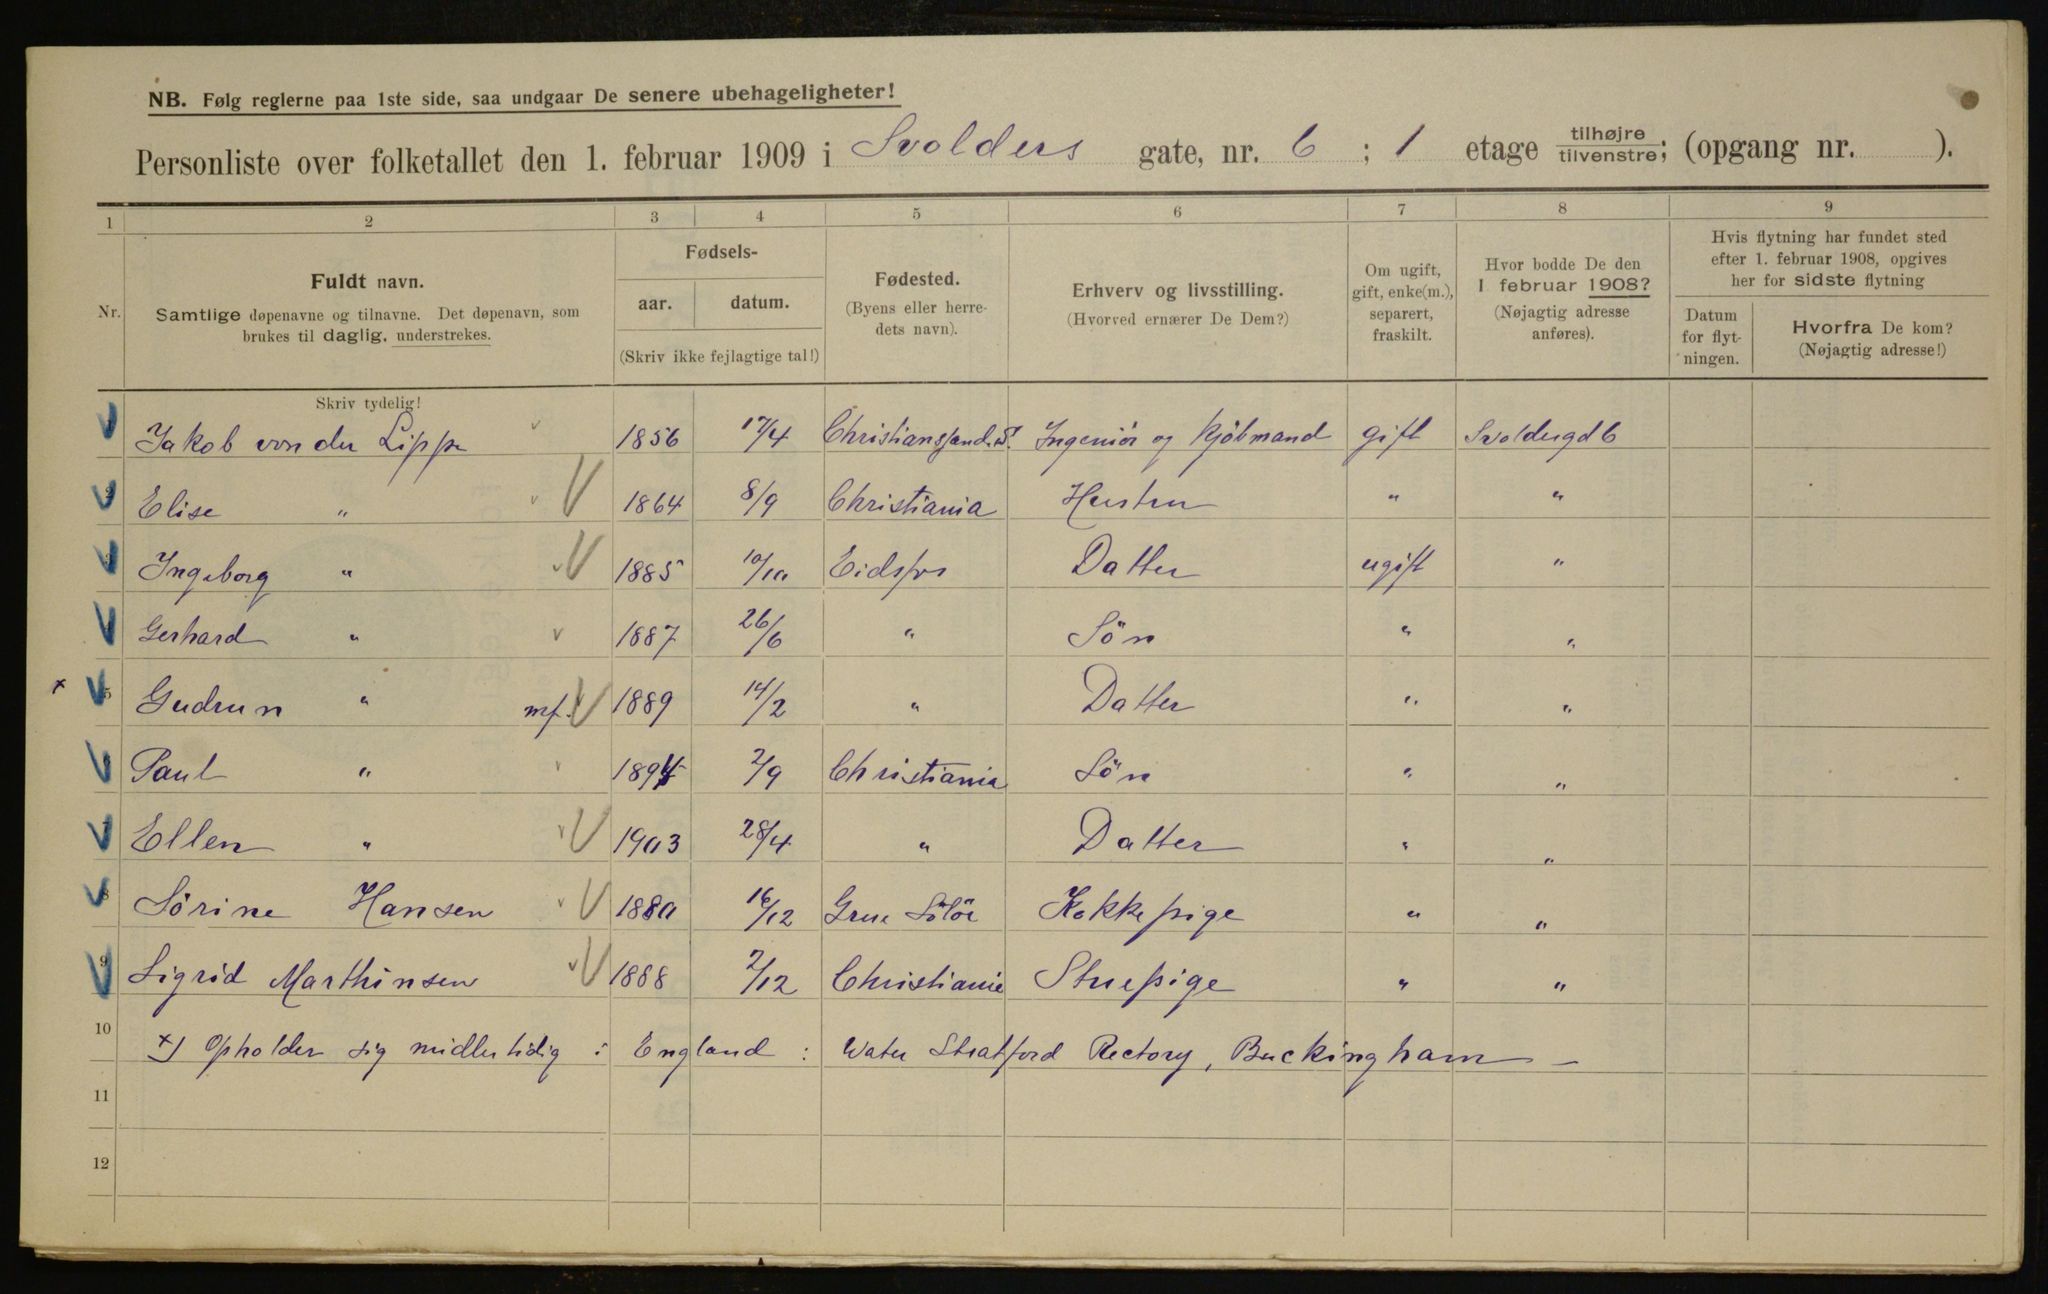 NB. Følg reglerne paa 1ste side, saa undgaar De senere ubehageligheter!
Personliste over folketallet den 1. februar 1909 i Svolders gate, nr. 6 ; 1 etage tilhøjre/tilvenstre; (opgang nr. ).
1 2 3 4 5 6 7 8 9
Nr.
Fuldt navn.
Samtlige døpenavne og tilnavne. Det døpenavn, som
brukes til daglig, understrekes.
Fødsels-
aar. datum.
(Skriv ikke fejlagtige tal!)
Fødested.
(Byens eller herre-
dets navn).
Erhverv og livsstilling.
(Hvorved ernærer De Dem?)
Om ugift,
gift, enke(m.),
separert,
fraskilt.
Hvor bodde De den
1 februar 1908?
(Nøjagtig adresse
anføres).
Hvis flytning har fundet sted
efter 1. februar 1908, opgives
her for sidste flytning
Datum
for flyt-
ningen.
Hvorfra De kom?
(Nøjagtig adresse!)
Skriv tydelig!
1 Jakob von der Lippe 1856 17/4 Christianssand.S. Ingeniör og Kjöbmand gift Svoldergd 6
2 Elise " 1864 8/9 Christiania Hustru " "
3 Ingeborg " 1885 10/10 Eidsfos Datter ugift "
4 Gerhard " 1887 26/6 " Sön " "
x 5 Gudrun " mf. 1889 14/2 " Datter " "
6 Paul " 2/9 Christiania Sön " "
7 Ellen " 1903 28/4 " Datter " "
8 Sörine Hansen 1880 16/12 Grue Solör Kokkepige " "
9 Sigrid Marthinsen 1888 2/12 Christiania Stuepige " "
10 x) Opholder sig midlertidig i England : Water Stratford Rectory, Buckingham —
11
12